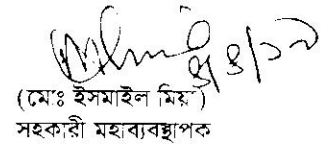 ৯/৪/১৭
(মোঃ ইসমাইল মিয়া)
সহকারী মহাব্যবস্থাপক